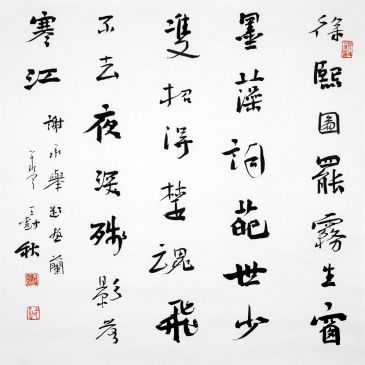 徐熙圖罷霧生窗
墨藻詞葩世少
雙招得楚魂飛
不去夜深殘影落
寒江
謝承舉題畫蘭
秋